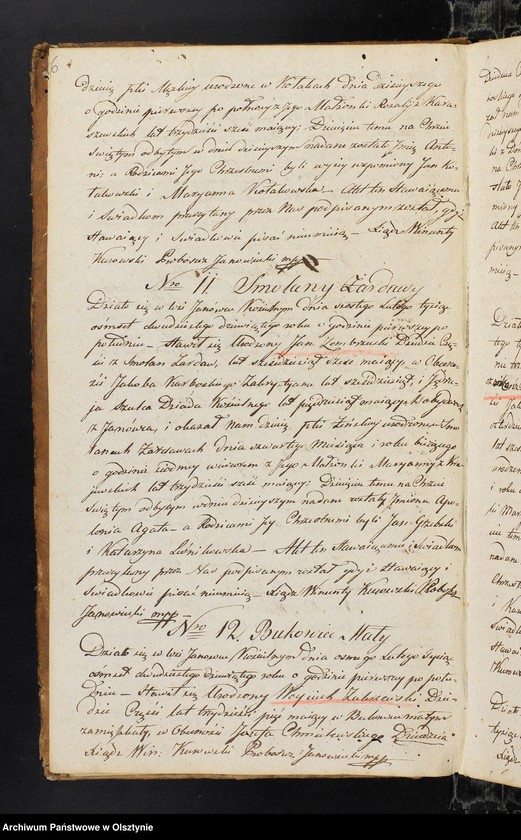 6
dziecię płci Męskiej urodzone w Kołakach dnia dzisieyszego
o godzinie pierwszey po północy z Jego Małżonki Rozalij z Kara-
szewskich lat trzydzieści sześć maiącey. Dziecięciu temu na Chrzcie
Swiętym odbytym w dniu dzisieyszym nadane zostało Jmię Anto-
ni, a Rodzicami Jego Chrzestnemi byli wyżey wzpomniony Jan Ko-
łakowski i Maryanna Kołakowska – Akt ten Stawaiącemu
i Swiadkom przeczytany przez Nas podpisanym został, gdyż
Stawaiący i Swiadkowie pisać nieumieią – Xiądz Wincenty
Kurowski Proboszcz Janowiecki mpp
Nro 11 Smolany Żardawy
Działo się w wsi Janówcu Kościelnym dnia szóstego Lutego tysiąc
ośmset dwudziestego dziewiątego roku o godzinie pierwszey po
południu – Stawił się Urodzony Jan Zembrzuski Dziedzic Czę-
ści z Smolan Żardaw, lat sześćdziesiąt sześć maiący, w Obecno-
ści Jakoba lat sześćdziesiąt, i Jędrze-
ja Szulca Dziada Kościelnego lat pięćdziesiąt maiących, obydwóch
z Janowca, i okazał nam dziecię płci Żeńskiey urodzone w Smo-
lanach Żardawach dnia czwartego Miesiąca i roku bieżącego
o godzinie siódmey wieczorem z Jego Małżonki Maryanny z Kra-
jewskich lat trzydzieści sześć maiącey. Dziecięciu temu na Chrzcie
Swiętym odbytym w dniu dzisieyszym nadane zostały Jmiona Apo-
lonia Agata – a Rodzicami Jey Chrzestnemi byli Jan Grzebski
i Katarzyna Leśnikowska – Akt ten Stawaiącemu i Swiadkom
przeczytany przez Nas podpisanym został gdyż Stawaiący i
Swiadkowie pisać nieumieią – Xiądz Wincenty Kurowski Proboszcz
Janowiecki mpp
Nro 12. Bukowiec Mały
Działo się w wsi Janowcu Kościelnym dnia osmego Lutego tysiąc
ośmset dwudziestego dziewiątego roku o godzinie pierwszey po połu-
dniu – Stawił się Urodzony Woyciech Zaborowski Dzie-
dzic Części lat trzydzieści pięć maiący w Bukowcu małym
zamieszkały, w Obecności Józefa Chmielewskiego Dziedzica
Xiądz Win: Kurowski Proboszcz Janowiecki mpp
Archiwum Państwowe w Olsztynie